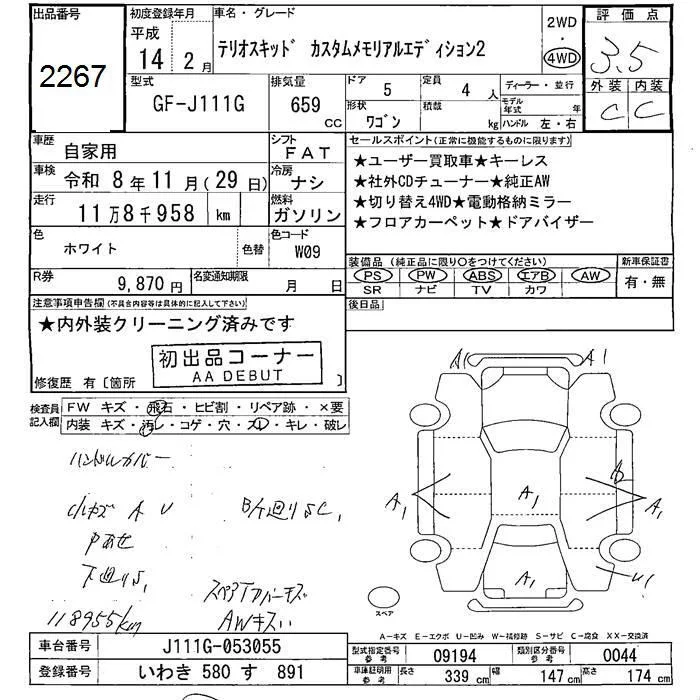 出品番号
2267
初度登録年月
平成
14年 2月
車名・グレード
テリオスキッド カスタムメモリアルエディション2
2WD
・
4WD
評価点
3.5
外装 内装
C C
型式
GF-J111G
排気量
659
CC
ドア 5
形状 ワゴン
定員 4人
積載 kg
ディーラー・並行
モデル年式 年
ハンドル 左・右
車歴
自家用
シフト
FAT
車検
令和 8年11月(29日)
冷房
ナシ
走行
11万8千958 km
燃料
ガソリン
色
ホワイト
色替
色コード
W09
R券
9,870円
名変通知期限
月 日
セールスポイント(正常に機能するものに限ります)
★ユーザー買取車★キーレス
★社外CDチューナー★純正AW
★切り替え4WD★電動格納ミラー
★フロアカーペット★ドアバイザー
装備品(純正品に限り○をつけてください)
PS PW ABS エアB AW
SR ナビ TV カワ
新車保証書
有・無
後日品
注意事項申告欄(不具合内容等は具体的に記入して下さい)
★内外装クリーニング済みです
初出品コーナー
AA DEBUT
修復歴 有〔箇所 〕
検査員記入欄
FW キズ・飛石・ヒビ割・リペア跡・×要
内装 キズ・汚レ・コゲ・穴・スレ・キレ・破レ
ハンドルカバー
小キズ A U
下廻りS1
118955km
AWキズ
A1 A1
A1 A1 A1
A1
U1
スペア
A-キズ E-エクボ U-凹み W-補修跡 S-サビ C-腐食 XX-交換済
車台番号
J111G-053055
登録番号
いわき 580 す 891
型式指定番号
参考
09194
類別区分番号
参考
0044
車庫証明用
参考
長さ 339 cm 幅 147 cm 高さ 174 cm